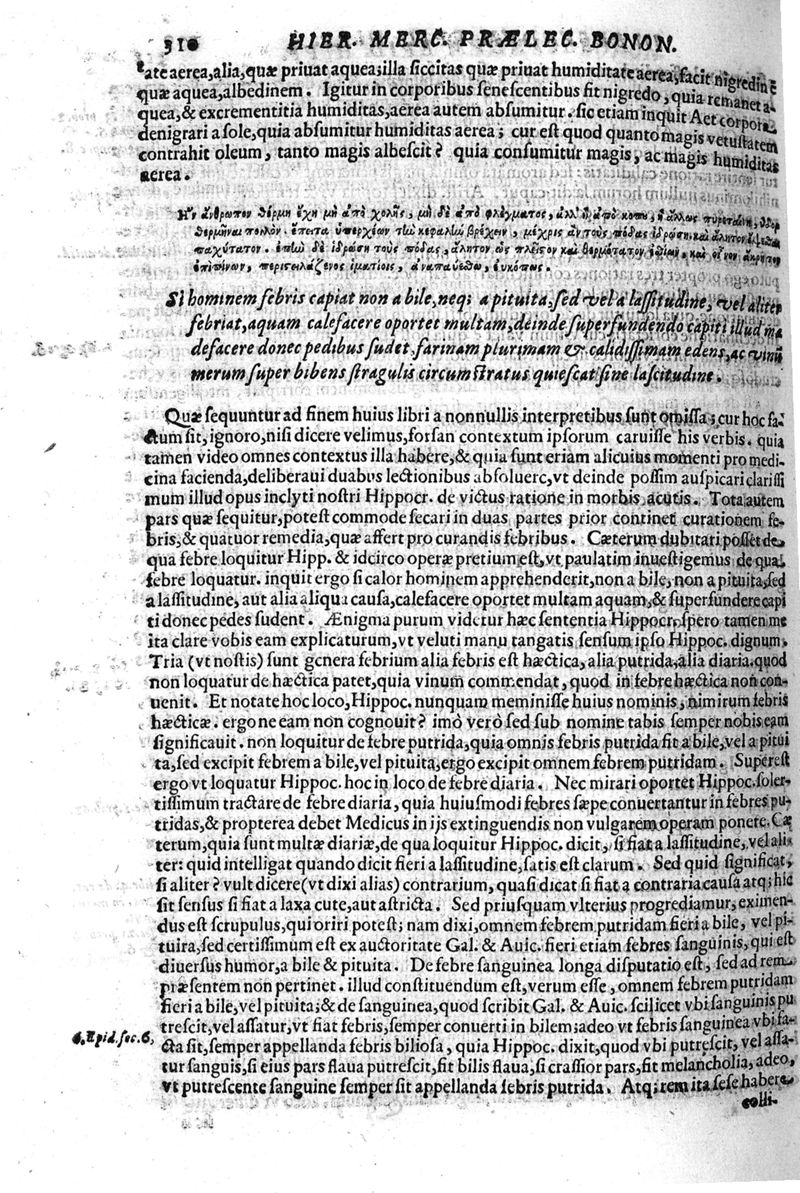 310 HIER. MERC. PRÆLEC. BONON.
ate aerea,alia,quæ priuat aquea;illa ſiccitas quæ priuat humiditate aerea,facit nigredinē
quæ aquea,albedinem. Igitur in corporibus ſeneſcentibus fit nigredo, quia remanet a-
quea,& excrementitia humiditas,aerea autem abſumitur. ſic etiam inquit Aet corpora
denigrari a ſole,quia abſumitur humiditas aerea; cur eſt quod quanto magis vetuſtatem
contrahit oleum, tanto magis albeſcit? quia conſumitur magis, ac magis humiditas
aerea.
Ην ἄνθρωπον θέρμη ἔχῃ μὴ ἀπὸ χολῆς, μὴ δὲ ἀπὸ φλέγματος,
παχύτατον.
Si hominem febris capiat non a bile,neq; a pituita,ſed vel a laſſitudine, vel aliter
febriat,aquam calefacere oportet multam,deinde ſuperfundendo capiti illud ma
defacere donec pedibus ſudet,farinam plurimam & calidiſſimam edens,ac vinū
merum ſuper bibens ſtragulis circumſtratus quieſcat ſine laſcitudine.
Quæ ſequuntur ad finem huius libri a nonnullis interpretibus ſunt omiſſa; cur hoc fa-
ctum ſit, ignoro,niſi dicere velimus,forſan contextum ipſorum caruiſſe his verbis. quia
tamen video omnes contextus illa habere,& quia ſunt etiam alicuius momenti pro medi-
cina facienda,deliberaui duabus lectionibus abſoluere,vt deinde poſſim auſpicari clariſſi
mum illud opus inclyti noſtri Hippocr. de victus ratione in morbis acutis. Tota autem
pars quæ ſequitur,poteſt commode ſecari in duas partes prior continet curationem fe-
bris,& quatuor remedia,quæ affert pro curandis febribus. Cæterum dubitari poſſet de
qua febre loquitur Hipp. & idcirco operæ pretium eſt,vt paulatim inueſtigemus de qua
febre loquatur. inquit ergo ſi calor hominem apprehenderit,non a bile,non a pituita,ſed
a laſſitudine, aut alia aliqua cauſa,calefacere oportet multam aquam,& ſuperfundere capi
ti donec pedes ſudent. Ænigma purum videtur hæc ſententia Hippocr.ſpero tamen me
ita clare vobis eam explicaturum,vt veluti manu tangatis ſenſum ipſo Hippoc. dignum.
Tria (vt noſtis) ſunt genera febrium alia febris eſt hæctica, alia putrida,alia diaria.quod
non loquatur de hæctica patet,quia vinum commendat, quod in febre hæctica non con-
uenit. Et notate hoc loco,Hippoc.nunquam meminiſſe huius nominis,nimirum febris
hæcticæ. ergo ne eam non cognouit? imò verò ſed ſub nomine tabis ſemper nobis eam
ſignificauit. non loquitur de febre putrida,quia omnis febris putrida fit a bile,vel a pitui
ta,ſed excipit febrem a bile,vel pituita,ergo excipit omnem febrem putridam. Supereſt
ergo vt loquatur Hippoc. hoc in loco de febre diaria. Nec mirari oportet Hippoc.ſoler-
tiſſimum tractare de febre diaria, quia huiuſmodi febres ſæpe conuertantur in febres pu-
tridas,& propterea debet Medicus in ijs extinguendis non vulgarem operam ponere. Cæ
terum,quia ſunt multæ diariæ,de qua loquitur Hippoc. dicit, ſi fiat a laſſitudine, vel ali-
ter: quid intelligat quando dicit fieri a laſſitudine,ſatis eſt clarum. Sed quid ſignificat,
ſi aliter? vult dicere(vt dixi alias) contrarium, quaſi dicat ſi fiat a contraria cauſa atq; hic
ſit ſenſus ſi fiat a laxa cute,aut aſtricta. Sed priuſquam vlterius progrediamur, eximen-
dus eſt ſcrupulus,qui oriri poteſt; nam dixi,omnem febrem putridam fieri a bile, vel pi-
tuira,ſed certiſſimum eſt ex auctoritate Gal. & Auic. fieri etiam febres ſanguinis, qui eſt
diuerſus humor,a bile & pituita. De febre ſanguinea longa diſputatio eſt, ſed ad rem
præſentem non pertinet. illud conſtituendum eſt,verum eſſe, omnem febrem putridam
fieri a bile,vel pituita;& de ſanguinea,quod ſcribit Gal. & Auic. ſcilicet vbi ſanguinis pu
treſcit,vel aſſatur,vt fiat febris,ſemper conuerti in bilem;adeo vt febris ſanguinea vbi fa-
6.Epid.ſec.6,
cta ſit,ſemper appellanda febris bilioſa, quia Hippoc. dixit,quod vbi putreſcit, vel aſſa-
tur ſanguis,ſi eius pars flaua putreſcit,fit bilis flaua,ſi craſſior pars,fit melancholia, adeo,
vt putreſcente ſanguine ſemper ſit appellanda febris putrida. Atq; rem ita ſeſe habere
colli-